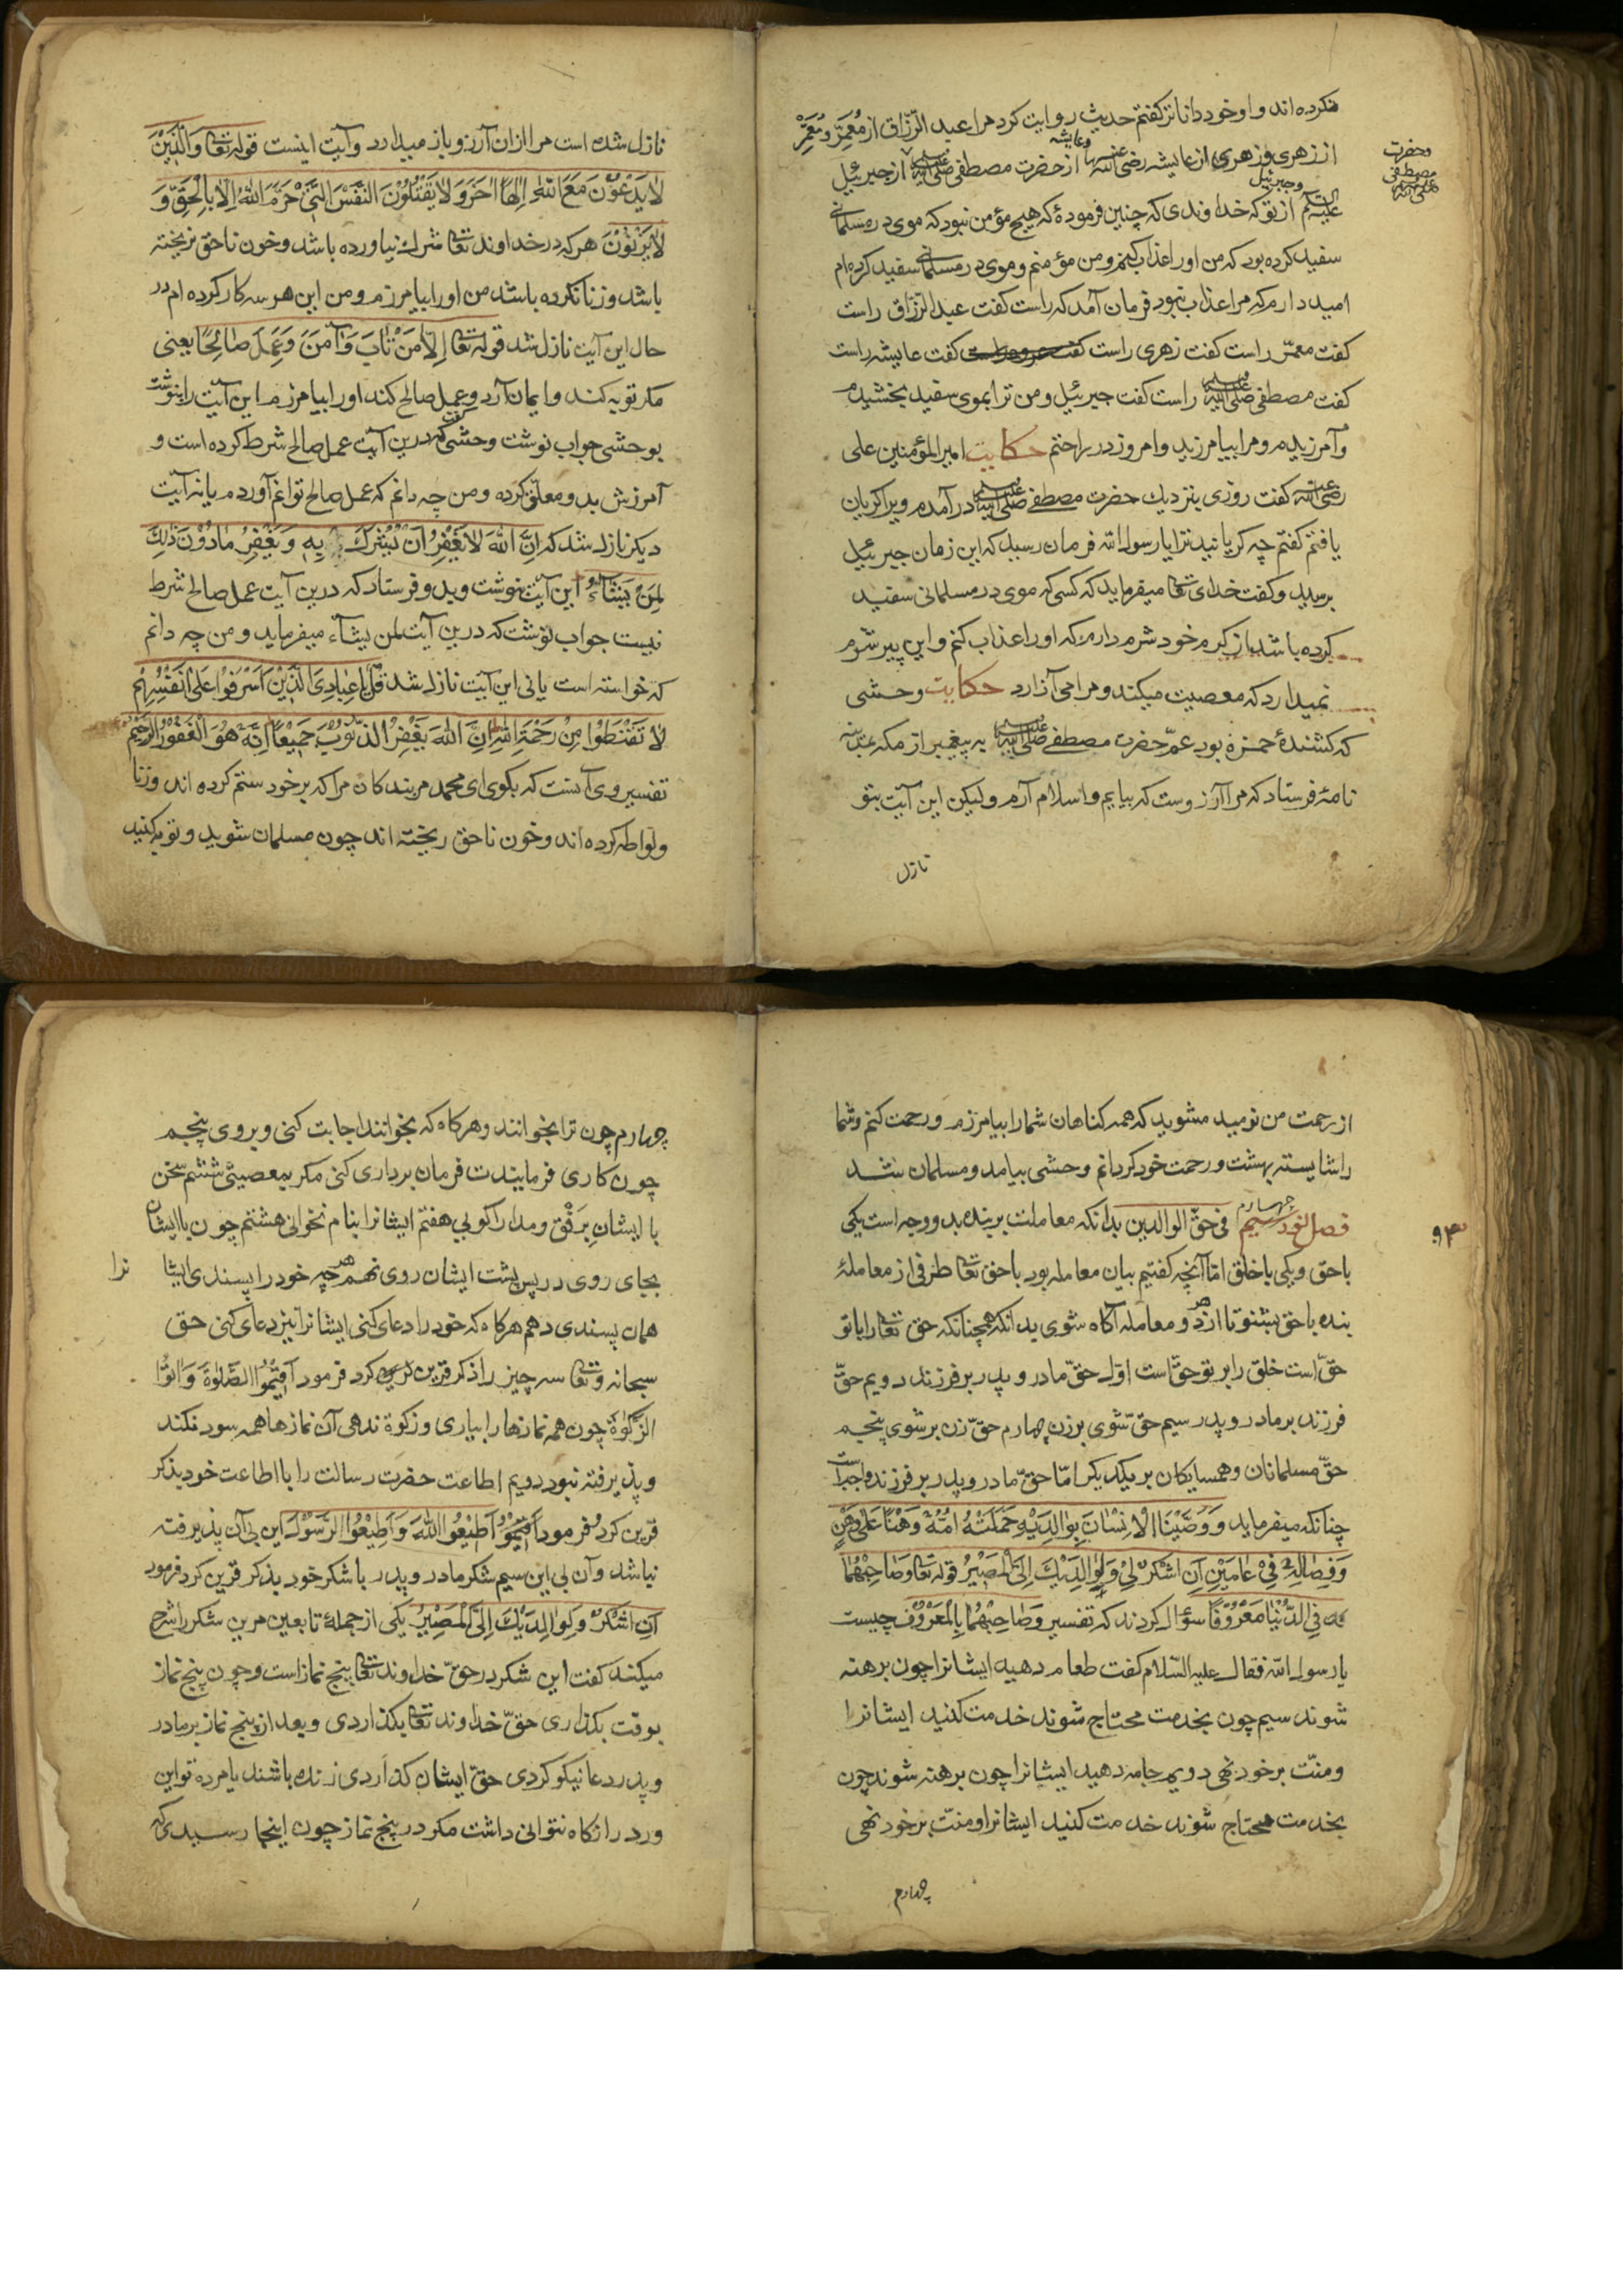 نکرده اند و او خود داناتر کفتم حدیث روایت کرد مرا عبد الرّزّاق از مُعمَّر و مُعَمَّر
از زهری و زهری از عایشه رضی الله عنها وعایشه از حضرت مصطفی صلی الله علیه وسلم از جبرئیل
وحضرت مصطفی صلی الله علیه وسلم
علیه السلام وجبرئیل از تو که خداوندی که چنین فرمودهٔ که هیچ مؤمن نبود که موی در مسلمانی
سفید کرده بود که من او را عذاب کنم و من مؤمنم و موی در مسلمانی سفید کرده ام
امید دارم که مرا عذاب نبود فرمان آمد که راست کفت عبد الرّزّاق راست
کفت معمّر راست کفت زهری راست کفت عایشه راست
کفت مصطفی صلی الله علیه وسلم راست کفت جبرئیل و من ترا بموی سفید بخشیدم
و آمرزیدم و مرا بیامرزید و امروز در راختم حکایت امیر المؤمنین علی
رضی الله عنه کفت روزی بنزدیك حضرت مصطفی صلی الله علیه وسلم در آمدم ویرا کریان
یافتم کفتم چه کریانید ترا یا رسول الله فرمان رسید که این زمان جبرئیل
برسید و کفت خدای تعالی میفرماید که کسی که موی در مسلمانی سفید
کرده باشد از کرم خود شرم دارم که او را عذاب کنم و این پیر شرم
نمیدارد که معصیت میکند و مرا می آزارد حکایت وحشی
که کشندهٔ حمزه بود عمّ حضرت مصطفی صلی الله علیه وسلم به پیغمبر از مکه بمدینه
نامهٔ فرستاد که مرا آرزوست که بیایم و اسلام آرم ولیکن این آیت بتو
نازل
نازل شده است مرا ازان آرزو باز میدارد و آیت اینست قوله تعالی وَالَّذِیْنَ
لَا یَدْعُوْنَ مَعَ اللهِ اِلٰهًا اٰخَرَ وَلَا یَقْتُلُوْنَ النَّفْسَ الَّتِیْ حَرَّمَ اللهُ اِلَّا بِالْحَقِّ وَ
لَا یَزْنُوْنَ هر که در خداوند تعالی شرك نیاورده باشد و خون ناحق نریخته
باشد و زنا نکرده باشد من او را بیامرزم و من این هر سه کار کرده ام در
حال این آیت نازل شد قوله تعالی اِلَّا مَنْ تَابَ وَآمَنَ وَعَمِلَ صَالِحًا یعنی
مکر توبه کند و ایمان آرد و عمل صالح کند او را بیامرزم این آیت را بنوشت
بوحشی جواب نوشت وحشی که درین آیت عمل صالح شرط کرده است و
آمرزش بدو معلّق کرده و من چه دانم که عمل صالح توانم آورد م یا نه آیت
دیکر نازل شد که اِنَّ اللهَ لَا یَغْفِرُ اَنْ یُّشْرَكَ بِهٖ وَیَغْفِرُ مَادُوْنَ ذٰلِكَ
لِمَنْ یَشَآءُ این آیت بنوشت وبدو فرستاد که درین آیت عمل صالح شرط
نیست جواب نوشت که درین آیت لمن یشآء میفرماید و من چه دانم
که خواسته است یا نی این آیت نازل شد قُلْ یَا عِبَادِیَ الَّذِیْنَ اَسْرَفُوْا عَلٰی اَنْفُسِهِمْ
لَا تَقْنَطُوْا مِنْ رَحْمَةِ اللهِ اِنَّ اللهَ یَغْفِرُ الذُّنُوْبَ جَمِیْعًا اِنَّهٗ هُوَ الْغَفُوْرُ الرَّحِیْمُ
تفسیر وی آنست که بکوی ای محمد مر بندکان مرا که بر خود ستم کرده اند وزنا
ولواطه کرده اند و خون ناحق ریخته اند چون مسلمان شوید و توبه کنید
از رحمت من نومید مشوید که همه کناهان شمارا بیامرزم و رحمت کنم و شما
را شایسته بهشت و رحمت خود کردانم وحشی بیامد و مسلمان شد
فصل نود چهارم فی حقّ الوالدین بدانکه معاملت بر بنده بدو وجه است یکی
۹۴
با حق و یکی با خلق امّا آنچه کفتیم بیان معامله بود با حق تعالی طرفی از معاملهٔ
بنده با حق بشنو تا از هر دو معامله آکاه شوی بدانکه همچنانکه حق تعالی را با تو
حقّ است خلق را بر تو حقّ است اوّل حقّ مادر و پدر بر فرزند دویم حقّ
فرزند بر مادر و پدر سیم حقّ شوی برزن چهارم حقّ زن بر شوی پنجم
حقّ مسلمانان و همسایکان بر یکدیکر امّا حقّ مادر و پدر بر فرزند واجب است
چنانکه میفرماید وَوَصَّیْنَا الْاِنْسَانَ بِوَالِدَیْهِ حَمَلَتْهُ اُمُّهٗ وَهْنًا عَلٰی وَهْنٍ
وَفِصَالُهٗ فِیْ عَامَیْنِ اَنِ اشْکُرْ لِیْ وَلِوَالِدَیْكَ اِلَیَّ الْمَصِیْرُ قوله تعالی وَصَاحِبْهُمَا
فِی الدُّنْیَا مَعْرُوْفًا سؤال کردند که تفسیر وَصَاحِبْهُمَا بِالْمَعْرُوْفِ چیست
یا رسول الله فقال علیه السّلام کفت طعام دهید ایشانرا چون برهنه
شوند سیم چون بخدمت محتاج شوند خدمت کنید ایشانرا
و منّت بر خود نهی دویم جامه دهید ایشانرا چون برهنه شوند چون
بخدمت محتاج شوند خدمت کنید ایشانرا و منّت بر خود نهی
چهارم
چهارم چون ترا بخوانند و هرکاه که بخوانند اجابت کنی و بروی پنجم
چون کاری فرمایندت فرمان برداری کنی مکر بمعصیتی ششم سخن
با ایشان بَرِفْق و مدارا کویی هفتم ایشانرا بنام نخوانی هشتم چون با ایشان
بجای روی در پس پشت ایشان روی نهم هر چه خود را پسندی ایشا نرا
همان پسندی دهم هرکاه که خود را دعای کنی ایشانرا نیز دعای کنی حق
سبحانه وتعالی سه چیز را ذکر قرین کرد فرمود اَقِیْمُوا الصَّلٰوةَ وَاٰتُوا
الزَّکٰوةَ چون همه نمازها را بیاری و زکوة ندهی آن نمازها همه سود نکند
و پذیرفته نبود دویم اطاعت حضرت رسالت را با اطاعت خود بذکر
قرین کرد فرمود اَطِیْعُوا اللهَ وَاَطِیْعُوا الرَّسُوْلَ این بی آن پذیرفته
نباشد و آن بی این سیم شکر مادر و پدر با شکر خود بذکر قرین کرد فرمود
اَنِ اشْکُرْ وَلِوَالِدَیْكَ اِلَیَّ الْمَصِیْرُ یکی از جملهٔ تابعین مرین شکر را شرح
میکند کفت این شکر در حقّ خداوند تعالی پنج نماز است و چون پنج نماز
بوقت بکذاری حقّ خداوند تعالی بکذاردی و بعد از پنج نماز بر مادر
و پدر دعا نیکو کردی حقّ ایشان کذاردی زنده باشند یا مرده تو این
ورد را نکاه نتوانی داشت مکر در پنج نماز چون اینجا رسیدی که